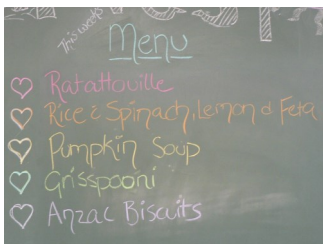 This week's
Menu
Ratattouille
Rice & Spinach, Lemon & Feta
Pumpkin Soup
Grisspooni
Anzac Biscuits